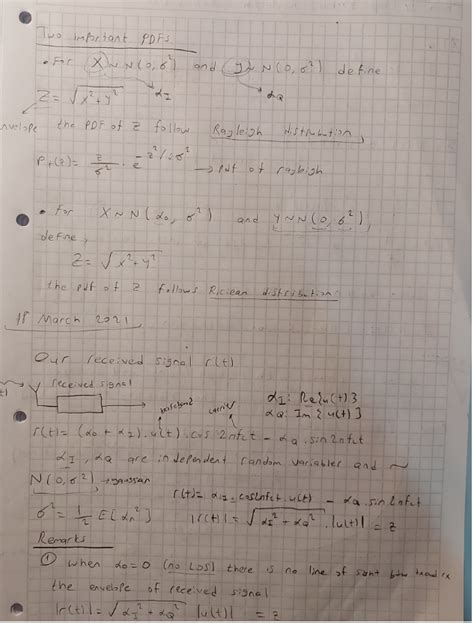 Two important PDFs
• For X ~ N(0, σ²) and Y ~ N(0, σ²) define
Z = √(x² + y²) α_I α_Q
envelope the PDF of z follow Rayleigh distribution,
P_r(z) = z/σ² . e^(-z²/2σ²) → pdf of rayleigh
• For X ~ N(α₀, σ²) and Y ~ N(0, σ²),
define,
Z = √(x² + y²)
the pdf of z follows Ricean distribution
18 March 2021
Our received signal r(t)
received signal
α_I: Re{u(t)}
α_Q: Im{u(t)}
carrier
r(t) = (α₀ + α_I).u(t).cos2πfct - α_Q.sin2πfct
α_I, α_Q are independent random variables and ~
N(0, σ²) → gaussian
r(t) = α_I.cos2πfct.u(t) - α_Q.sin2πfct
σ² = 1/2 E[αn²] |r(t)| = √(α_I² + α_Q²).|u(t)| = z
Remarks
① when α₀=0 (no LOS) there is no line of sight btw
the envelope of received signal
|r(t)| = √(α_I² + α_Q²) |u(t)| = z